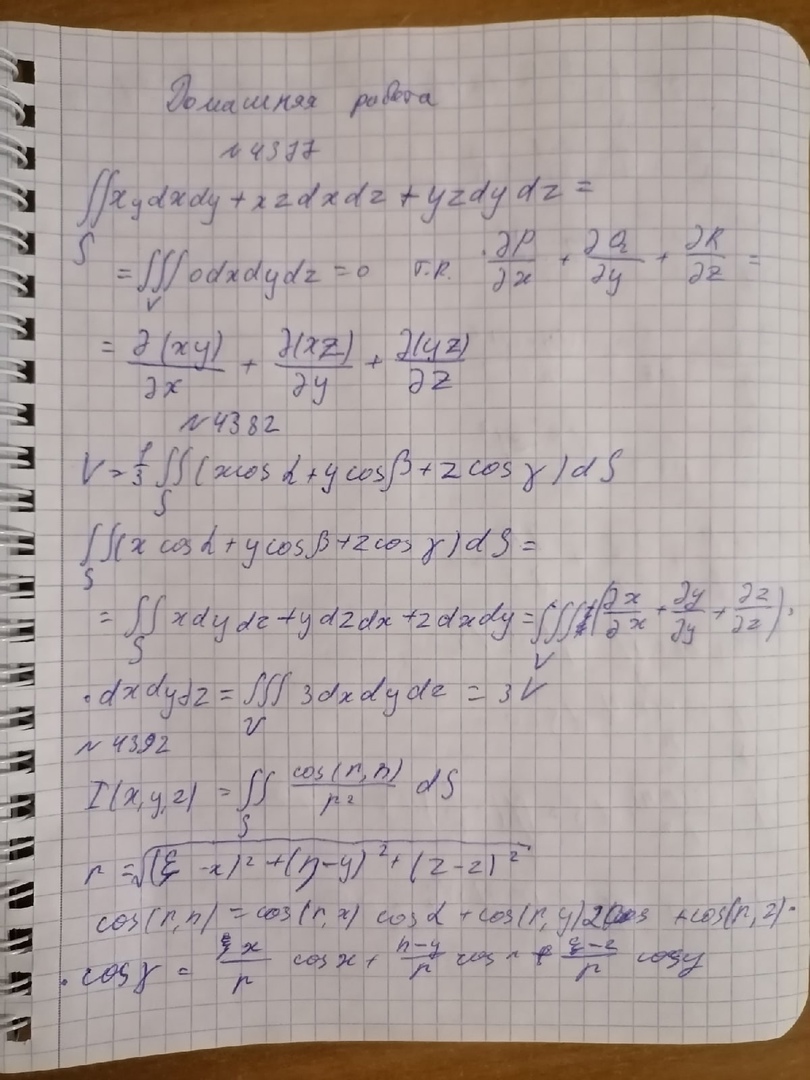 Домашняя работа
№4377
∬xydxdy + xzdxdz + yzdydz =
S
= ∭0dxdydz = 0 т.к. ∂P/∂x + ∂Q/∂y + ∂R/∂z =
V
= ∂(xy)/∂x + ∂(xz)/∂y + ∂(yz)/∂z
№4382
V = 1/3 ∬(xcos α + y cos β + z cos γ) dS
S
∬(x cos α + y cos β + z cos γ) dS =
S
= ∬ xdydz + ydzdx + zdxdy = ∭(∂x/∂x + ∂y/∂y + ∂z/∂z)·
S V
·dxdydz = ∭ 3dxdydz = 3V
V
№4392
I(x,y,z) = ∬ cos(r,n)/r² dS
S
r = √(ξ-x)² + (η-y)² + (z-z)²
cos(r,n) = cos(r,x) cos α + cos(r,y) + cos(r,z)·
·cos γ = ξ x/r cos x + η-y/r cos ξ-z/r cos y